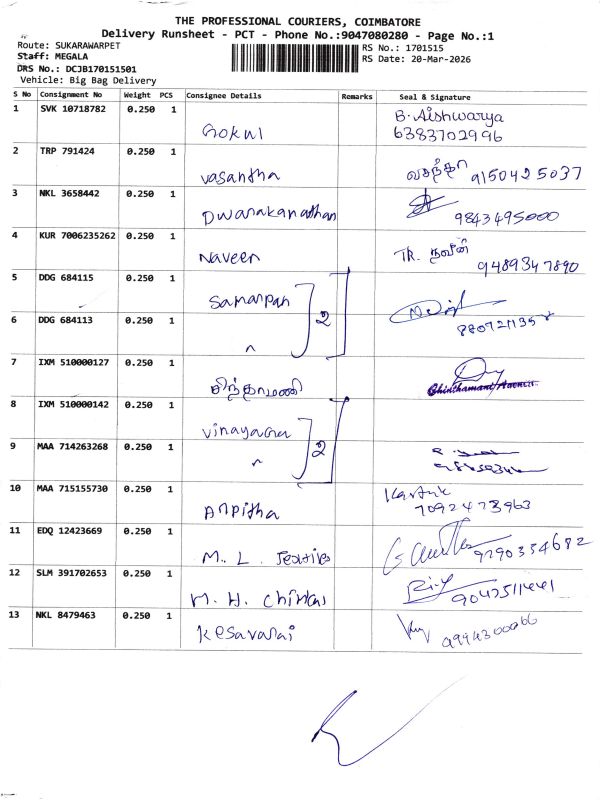 THE PROFESSIONAL COURIERS, COIMBATORE
Delivery Runsheet - PCT - Phone No.:9047080280 - Page No.:1
Route: SUKARAWARPET
RS No.: 1701515
Staff: MEGALA
RS Date: 20-Mar-2026
DRS No.: DCJB170151501
Vehicle: Big Bag Delivery
S No Consignment No Weight PCS Consignee Details Remarks Seal & Signature
1 SVK 10718782 0.250 1 Gokul B. Aishwarya
6383702996
2 TRP 791424 0.250 1 vasantha வசந்தா 9150425037
3 NKL 3658442 0.250 1 Dwarakanathan 9843495000
4 KUR 7006235262 0.250 1 Naveen TR. நவீன்
9489347890
5 DDG 684115 0.250 1 Samarpan 2
6 DDG 684113 0.250 1 "
7 IXM 510000127 0.250 1 சிந்தாமணி Chinthamani
8 IXM 510000142 0.250 1 vinayaga 2
9 MAA 714263268 0.250 1 "
10 MAA 715155730 0.250 1 Arpitha Karthik
7092473963
11 EDQ 12423669 0.250 1 M. L. Textiles 9790354682
12 SLM 391702653 0.250 1 M. H. 9047511441
13 NKL 8479463 0.250 1 Kesavaraj 9994300066